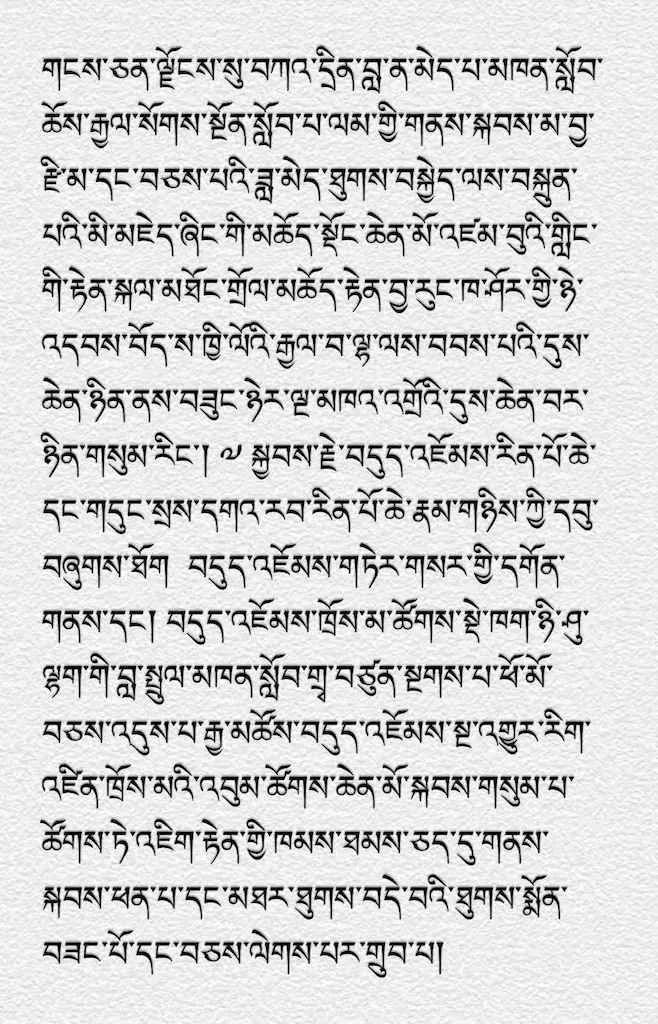 གངས་ཅན་ལྗོངས་སུ་བཀའ་དྲིན་བླ་ན་མེད་པ་མཁན་སློབ་
ཆོས་རྒྱལ་སོགས་སྔོན་སློབ་པ་ལམ་གྱི་གནས་སྐབས་མ་བྱ་
རྫི་མ་དང་བཅས་པའི་ཟླ་མེད་ཐུགས་བསྐྱེད་ལས་བསྐྲུན་
པའི་མི་མཇེད་ཞིང་གི་མཆོད་སྡོང་ཆེན་མོ་འཛམ་བུའི་གླིང་
གི་རྟེན་སྐལ་མཐོང་གྲོལ་མཆོད་རྟེན་བྱ་རུང་ཁ་ཤོར་གྱི་ཉེ་
འདབས་བོད་ས་ཁྱི་ལོའི་རྒྱལ་བ་ལྷ་ལས་བབས་པའི་དུས་
ཆེན་ཉིན་ནས་བཟུང་ཉེར་ལྔ་མཁའ་འགྲོའི་དུས་ཆེན་བར་
ཉིན་གསུམ་རིང་། ༧ སྐྱབས་རྗེ་བདུད་འཇོམས་རིན་པོ་ཆེ་
དང་གདུང་སྲས་དགའ་རབ་རིན་པོ་ཆེ་རྣམ་གཉིས་ཀྱི་དབུ་
བཞུགས་ཐོག བདུད་འཇོམས་གཏེར་གསར་གྱི་དགོན་
གནས་དང་། བདུད་འཇོམས་ཁྲོས་མ་ཚོགས་སྡེ་ཁག་ཉི་ཤུ་
ལྷག་གི་བླ་སྤྲུལ་མཁན་སློབ་གྲྭ་བཙུན་སྔགས་པ་ཕོ་མོ་
བཅས་འདུས་པ་རྒྱ་མཚོས་བདུད་འཇོམས་སྔ་འགྱུར་རིག་
འཛིན་ཁྲོས་མའི་འབུམ་ཚོགས་ཆེན་མོ་སྐབས་གསུམ་པ་
ཚོགས་ཏེ་འཇིག་རྟེན་གྱི་ཁམས་ཐམས་ཅད་དུ་གནས་
སྐབས་ཕན་པ་དང་མཐར་ཐུགས་བདེ་བའི་ཐུགས་སྨོན་
བཟང་པོ་དང་བཅས་ལེགས་པར་གྲུབ་པ།